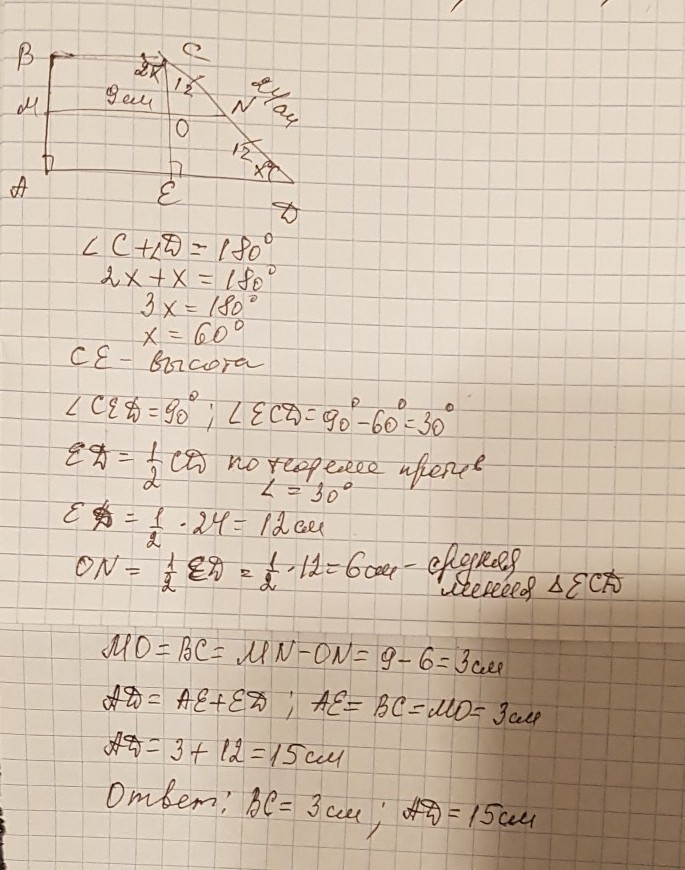 B
C
2x
12
24 см
M
9 см
N
O
12
x
A
E
D
∠C+∠D=180°
2x+x=180°
3x=180°
x=60°
CE - высота
∠CED=90°; ∠ECD=90°-60°=30°
ED=1/2 CD по теореме против
∠=30°
ED=1/2·24=12см
ON=1/2 ED=1/2·12=6см - средняя
линия △ECD
MO=BC=MN-ON=9-6=3см
AD=AE+ED; AE=BC=MO=3см
AD=3+12=15см
Ответ: BC=3см; AD=15см